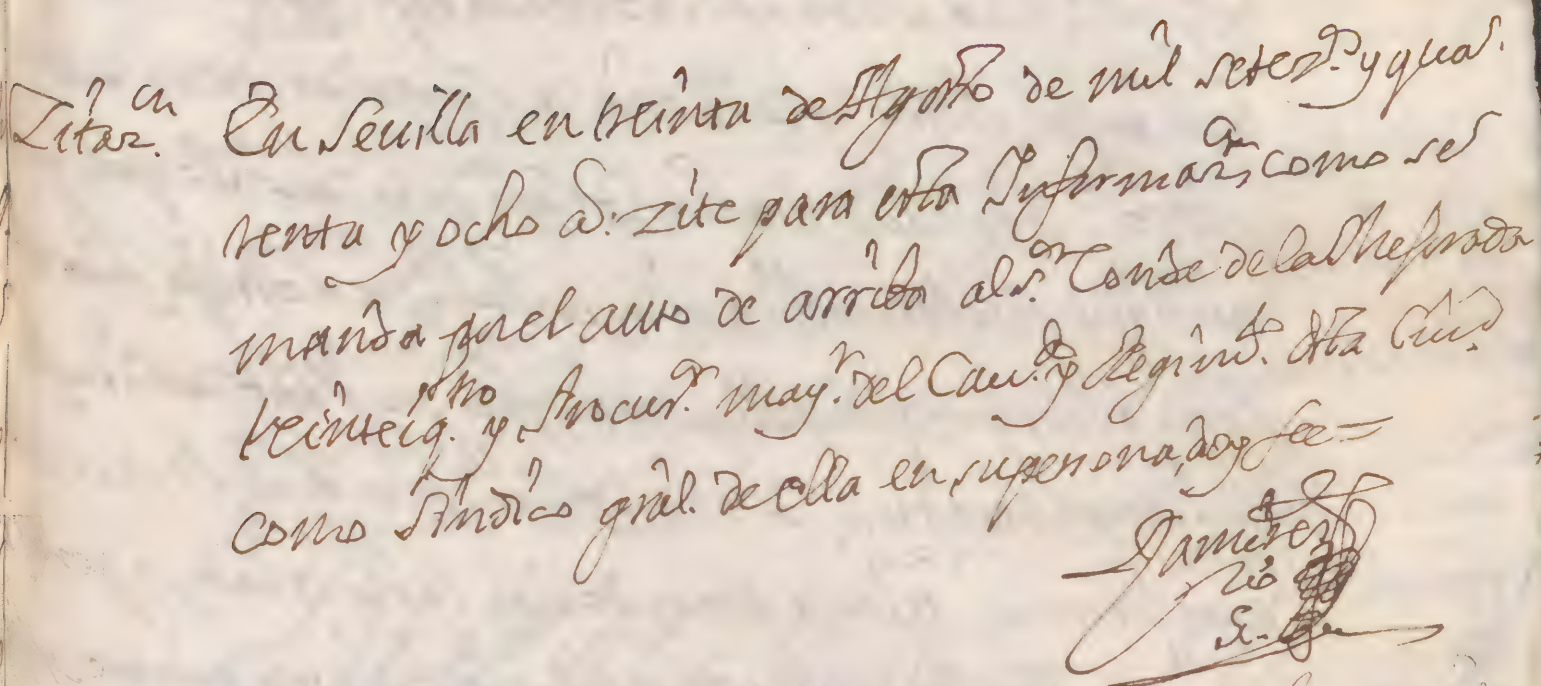 Zitaz.on En Sevilla en treinta de Agosto de mil setez.os y qua
renta y ocho a.s zite para esta Informaz.on como se
manda por el auto de arriba al s.or Conde de la Mejorada
Veintiiq.tro y Procur.or may.r del Cav.do y Regim.to desta Ciu.d
como sindico gral. de ella en su persona, doy fee =
Ramirez